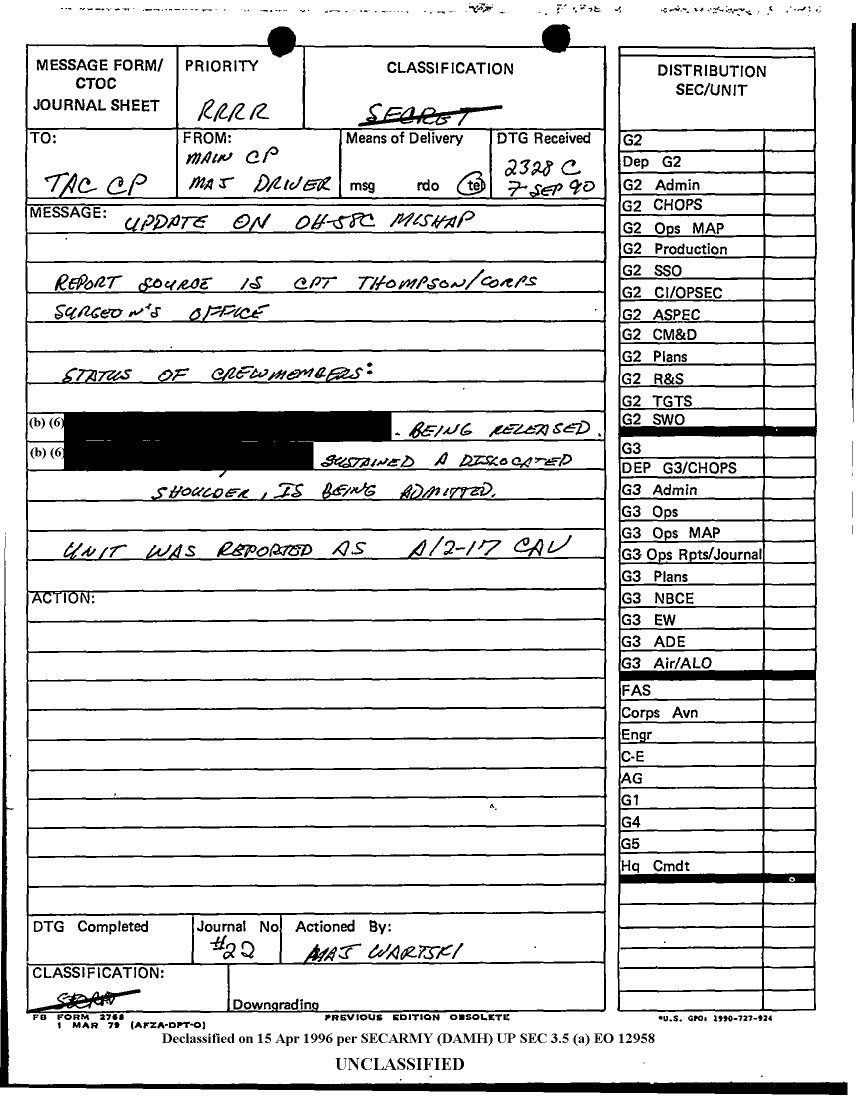 MESSAGE FORM/
CTOC
JOURNAL SHEET
PRIORITY
RRRR
CLASSIFICATION
SECRET
TO:
TAC CP
FROM:
MAIN CP
MAJ DRIVER
Means of Delivery
msg rdo tel
DTG Received
2328 C
7 SEP 90
MESSAGE: UPDATE ON OH-58C MISHAP
REPORT SOURCE IS CPT THOMPSON/CORPS
SURGEON'S OFFICE
STATUS OF CREWMEMBERS:
(b) (6) . BEING RELEASED.
(b) (6) SUSTAINED A DISLOCATED
SHOULDER, IS BEING ADMITTED.
UNIT WAS REPORTED AS A/2-17 CAV
ACTION:
DTG Completed
Journal No
#22
Actioned By:
MAJ WARTSKI
CLASSIFICATION:
SECRET
Downgrading
FB FORM 2768
1 MAR 79 (AFZA-DPT-O)
PREVIOUS EDITION OBSOLETE
DISTRIBUTION
SEC/UNIT
G2
Dep G2
G2 Admin
G2 CHOPS
G2 Ops MAP
G2 Production
G2 SSO
G2 CI/OPSEC
G2 ASPEC
G2 CM&D
G2 Plans
G2 R&S
G2 TGTS
G2 SWO
G3
DEP G3/CHOPS
G3 Admin
G3 Ops
G3 Ops MAP
G3 Ops Rpts/Journal
G3 Plans
G3 NBCE
G3 EW
G3 ADE
G3 Air/ALO
FAS
Corps Avn
Engr
C-E
AG
G1
G4
G5
Hq Cmdt
*U.S. GPO: 1990-727-924
Declassified on 15 Apr 1996 per SECARMY (DAMH) UP SEC 3.5 (a) EO 12958
UNCLASSIFIED